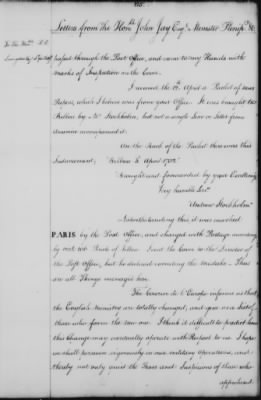 Letters from the Honble John Jay Esqr Minister Plenip &c
passed through the Post office, and came to my Hands with
marks of Inspection on the Cover.
I received the 18th April a Packet of
Papers, which I believe was from your Office. It was brought to
Bilboa by Mr Stockholm, but not a single Line or Letter from
America accompanied it.
On the Back of the Packet there was this
Indorsement, Bilboa 6 April 1782.
Brought and forwarded by your Excellency's
Very humble Servt
Andrew Stockholm
Notwithstanding this it was marked
PARIS by the Post Office, and charged with Postage accordingly
I sent the Cover to the Director of
the Post Office, but he declined correcting the mistake. These
are all Things managed here.
The Courier de l'Europe informs us that
the English Ministry are totally changed, and gives a list of
those who form the new one. I think it difficult to predict how
this Change may eventually operate with Respect to us. I hope
we shall persevere vigorously in our military Operations, and
thereby not only quiet the Fears and Suspicions of those who
apprehend